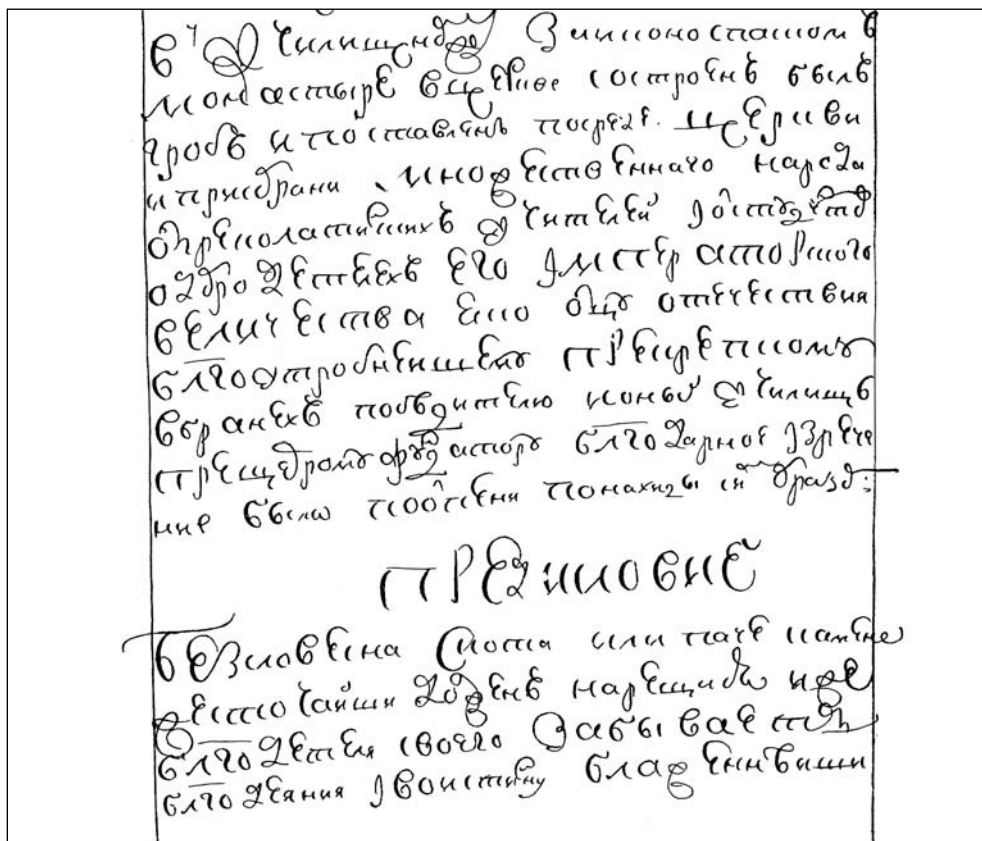 в училище Заиконоспаском в
монастыре в церкве состроенъ былъ
гробъ и поставленъ посреде церкви
и при собрани множественнаго народа
о гре́колатинскихъ учителей
о добродетелехъ его императорскаго
величества яко отцу отечествия
блгоутробнейшему прекрепкому
в бранехъ победителю училищъ
прещедрому благодарное изрече
ние было по
предисловие
безсловесна скота или паче камене
жесточайши должень нарещися иже
блгодетеля своего забывает
блгодеяния воистину блаженнейши